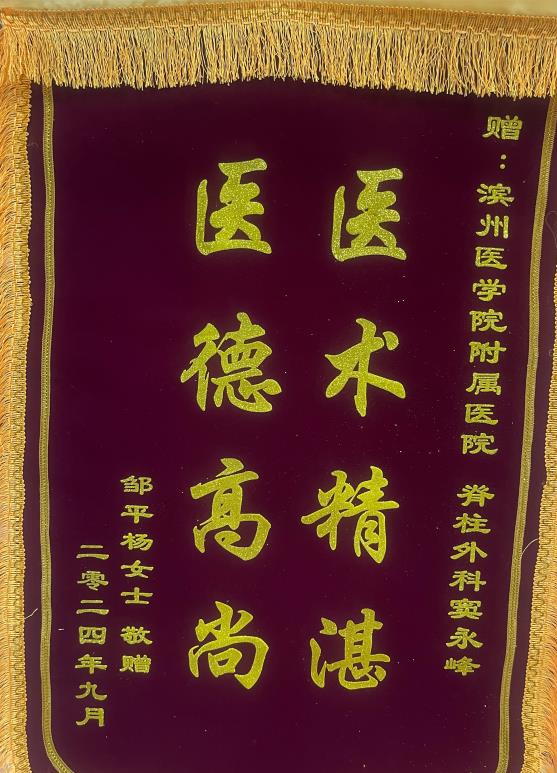 赠：滨州医学院附属医院 脊柱外科窦永峰
医术精湛
医德高尚
邹平杨女士 敬赠
二零二四年九月